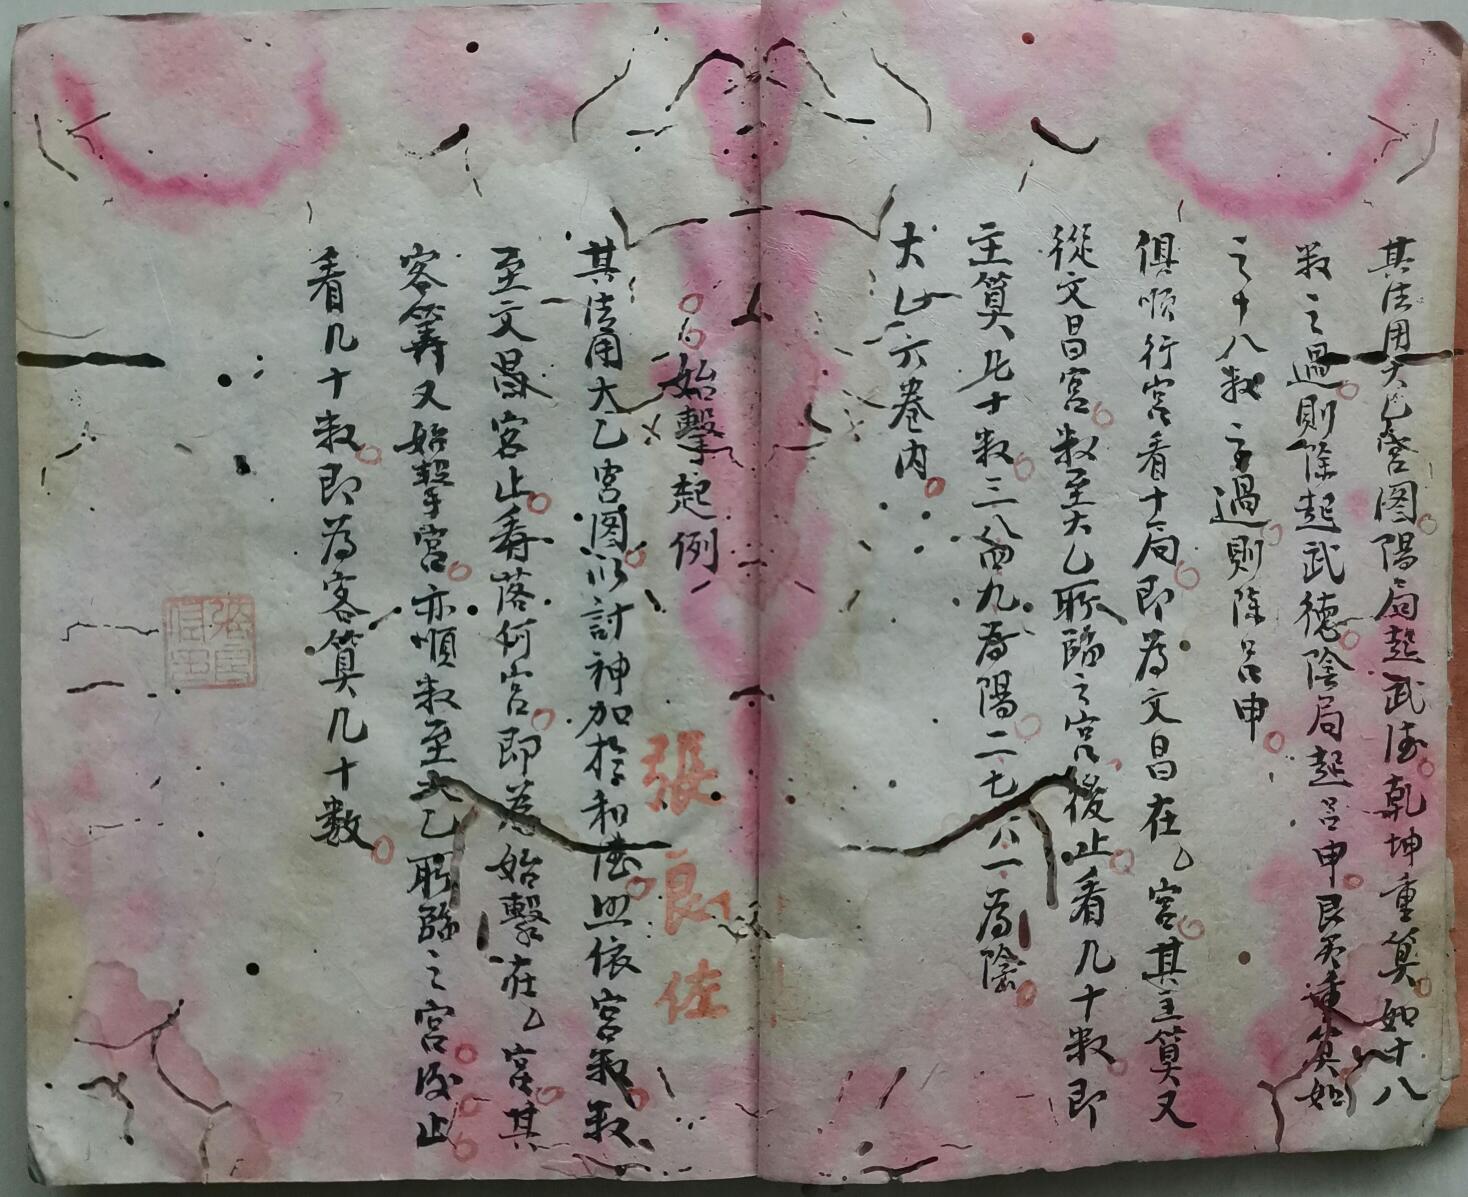 其法用太乙宫图陽局起武德乾坤重算如十八
数之過則除起武德陰局起吕申艮巽重算如
之十八数之過則除吕申
俱順行宫看十局即為文昌在乙宫其主算又
從文昌宫数至大乙所臨之宫後止看几十数即
主算几十数三八四九為陽二七六一為陰
大乙六卷内
始擊起例
張良佐
其法用大乙宫图以討神加於和德照依宫数数
至文昌客止看落何宫即為始擊在乙宫其
客筭又始擊宫亦順数至大乙所臨之宫後止
看几十数即為客算几十数